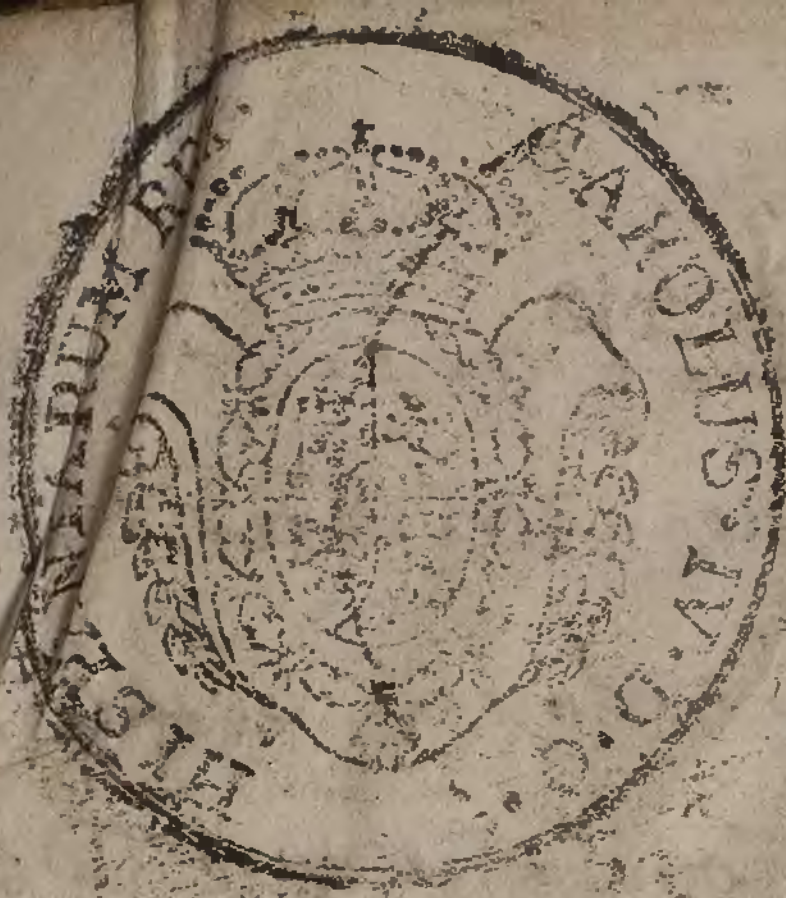 CAROLUS · IV · D · G ·
HISPANIARUM